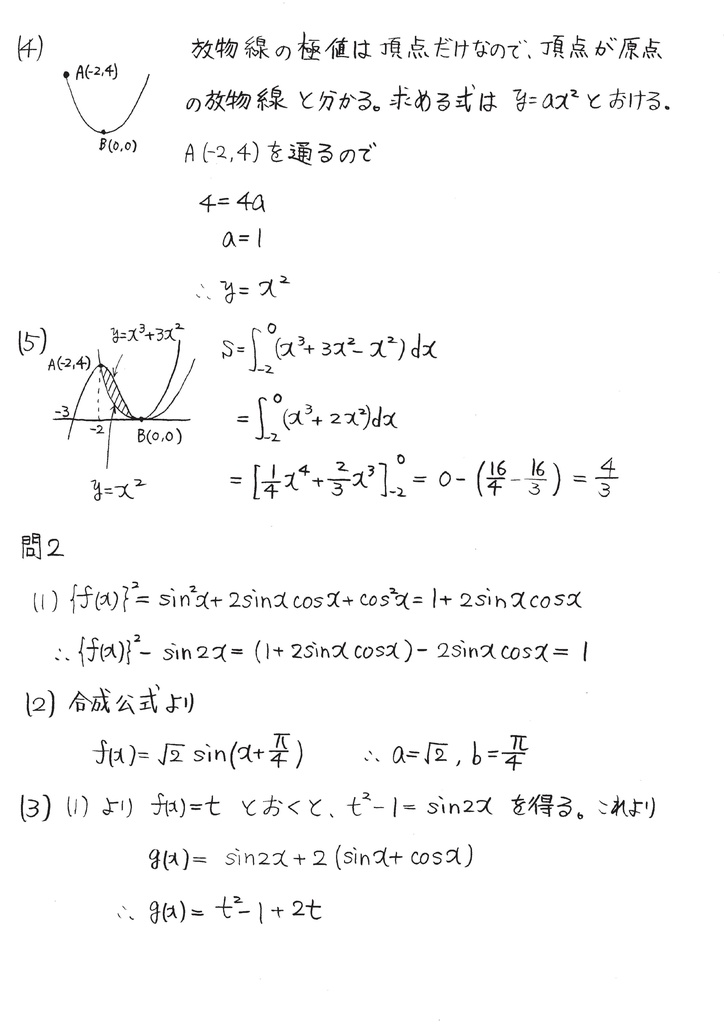 (4) 放物線の極値は頂点だけなので、頂点が原点
A(-2,4)
の放物線と分かる。求める式は y=ax²とおける.
B(0,0)
A(-2,4)を通るので
4=4a
a=1
∴ y=x²
(5) y=x³+3x² S=∫₋₂⁰(x³+3x²-x²)dx
A(-2,4)
-3 -2 B(0,0) =∫₋₂⁰(x³+2x²)dx
y=x² =[1/4x⁴+2/3x³]₋₂⁰=0-(16/4-16/3)=4/3
問2
(1) {f(x)}²=sin²x+2sinxcosx+cos²x=1+2sinxcosx
∴{f(x)}²-sin2x=(1+2sinxcosx)-2sinxcosx=1
(2) 合成公式より
f(x)=√2 sin(x+π/4) ∴ a=√2, b=π/4
(3) (1)より f(x)=t とおくと、t²-1=sin2x を得る。これより
g(x)= sin2x+2(sinx+cosx)
∴ g(x)=t²-1+2t